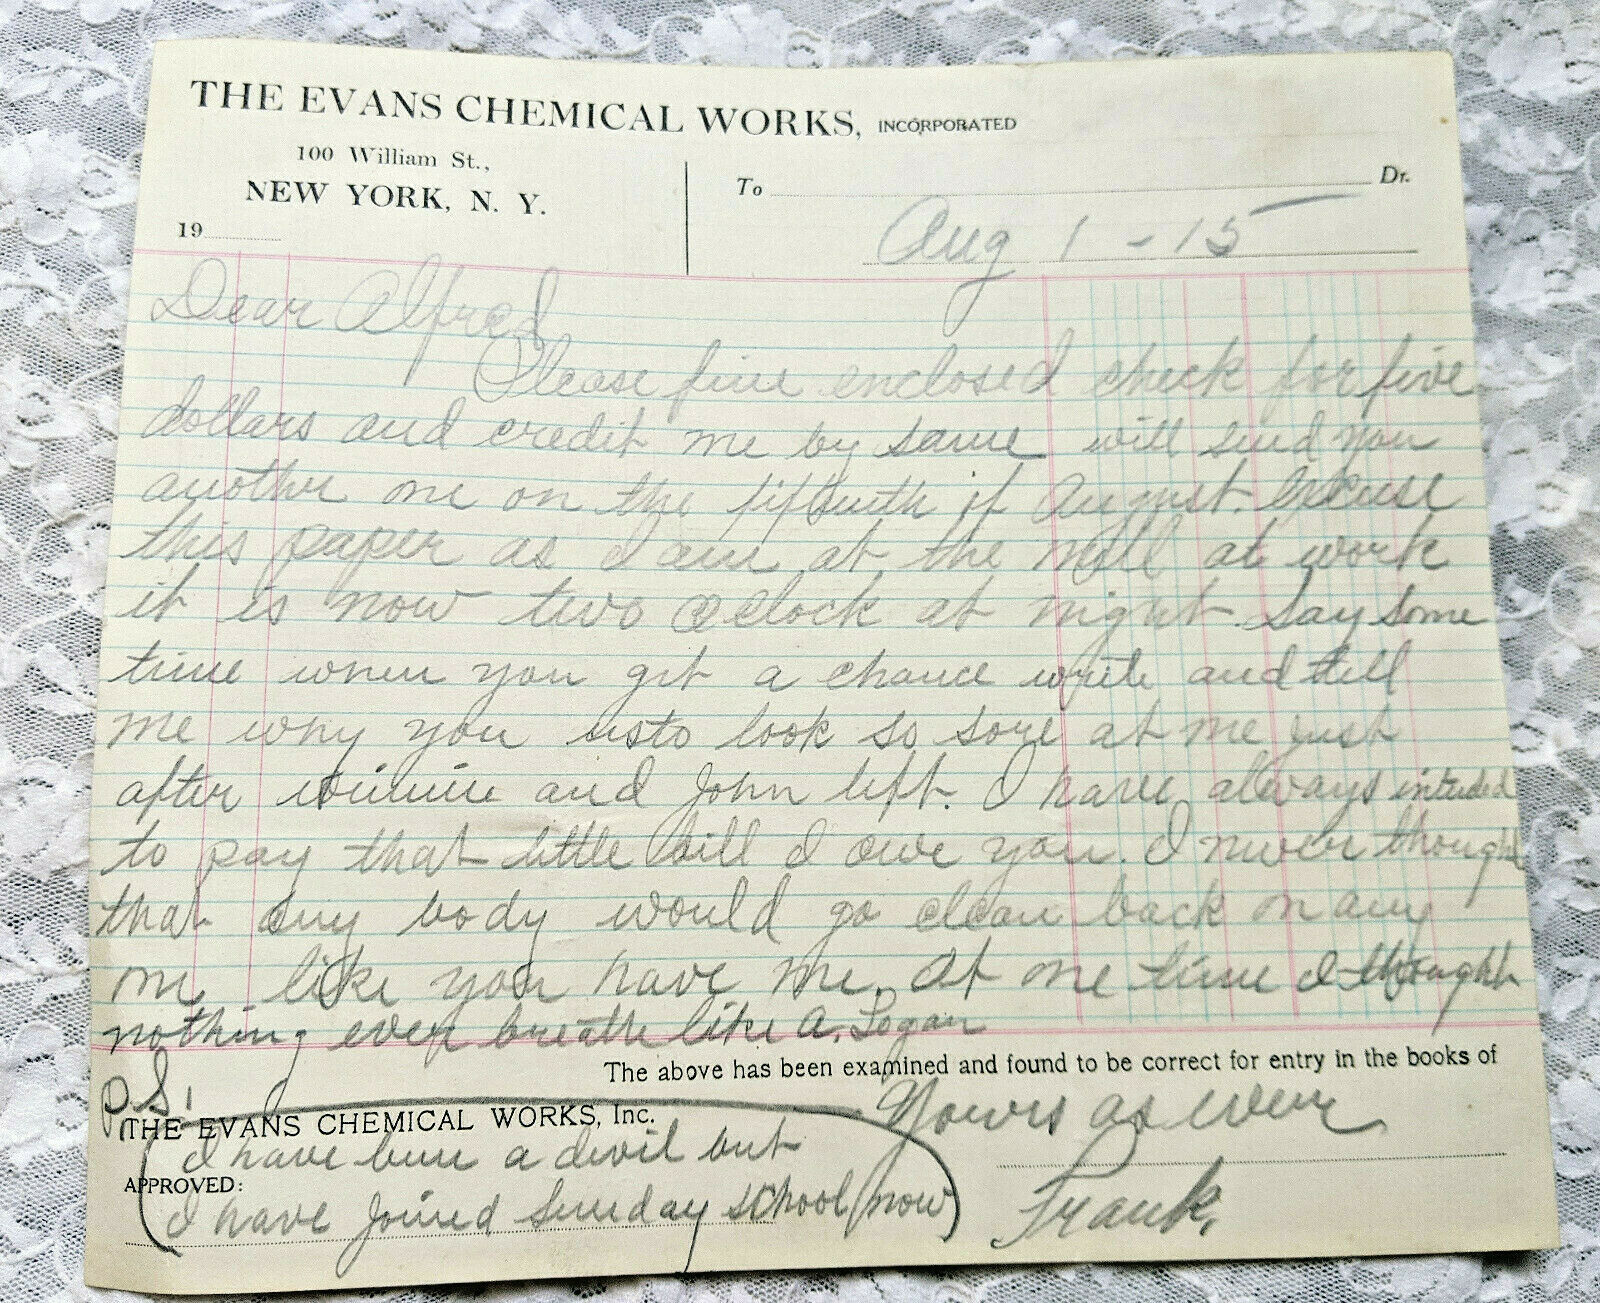 THE EVANS CHEMICAL WORKS, INCORPORATED
100 William St.,
NEW YORK, N. Y.
19
To Dr.
Aug 1 - 15
Dear Alfred
Please fine enclosed check for five
dollars and credit me by same will send you
another one on the fifteenth of August. Excuse
this paper as I am at the Mill at work
it is now two oclock at night. Say some
time when you get a chance write and tell
me why you usto look so sore at me just
after winnie and John left. I have always intended
to pay that little bill I owe you. I never thought
that any body would go clean back on any
one like you have me. At one time I thought
nothing ever breathe like A. Logan
The above has been examined and found to be correct for entry in the books of
P.S.
THE EVANS CHEMICAL WORKS, Inc.
Yours as ever
I have been a devil but
APPROVED:
I have joined Sunday school now
Frank.